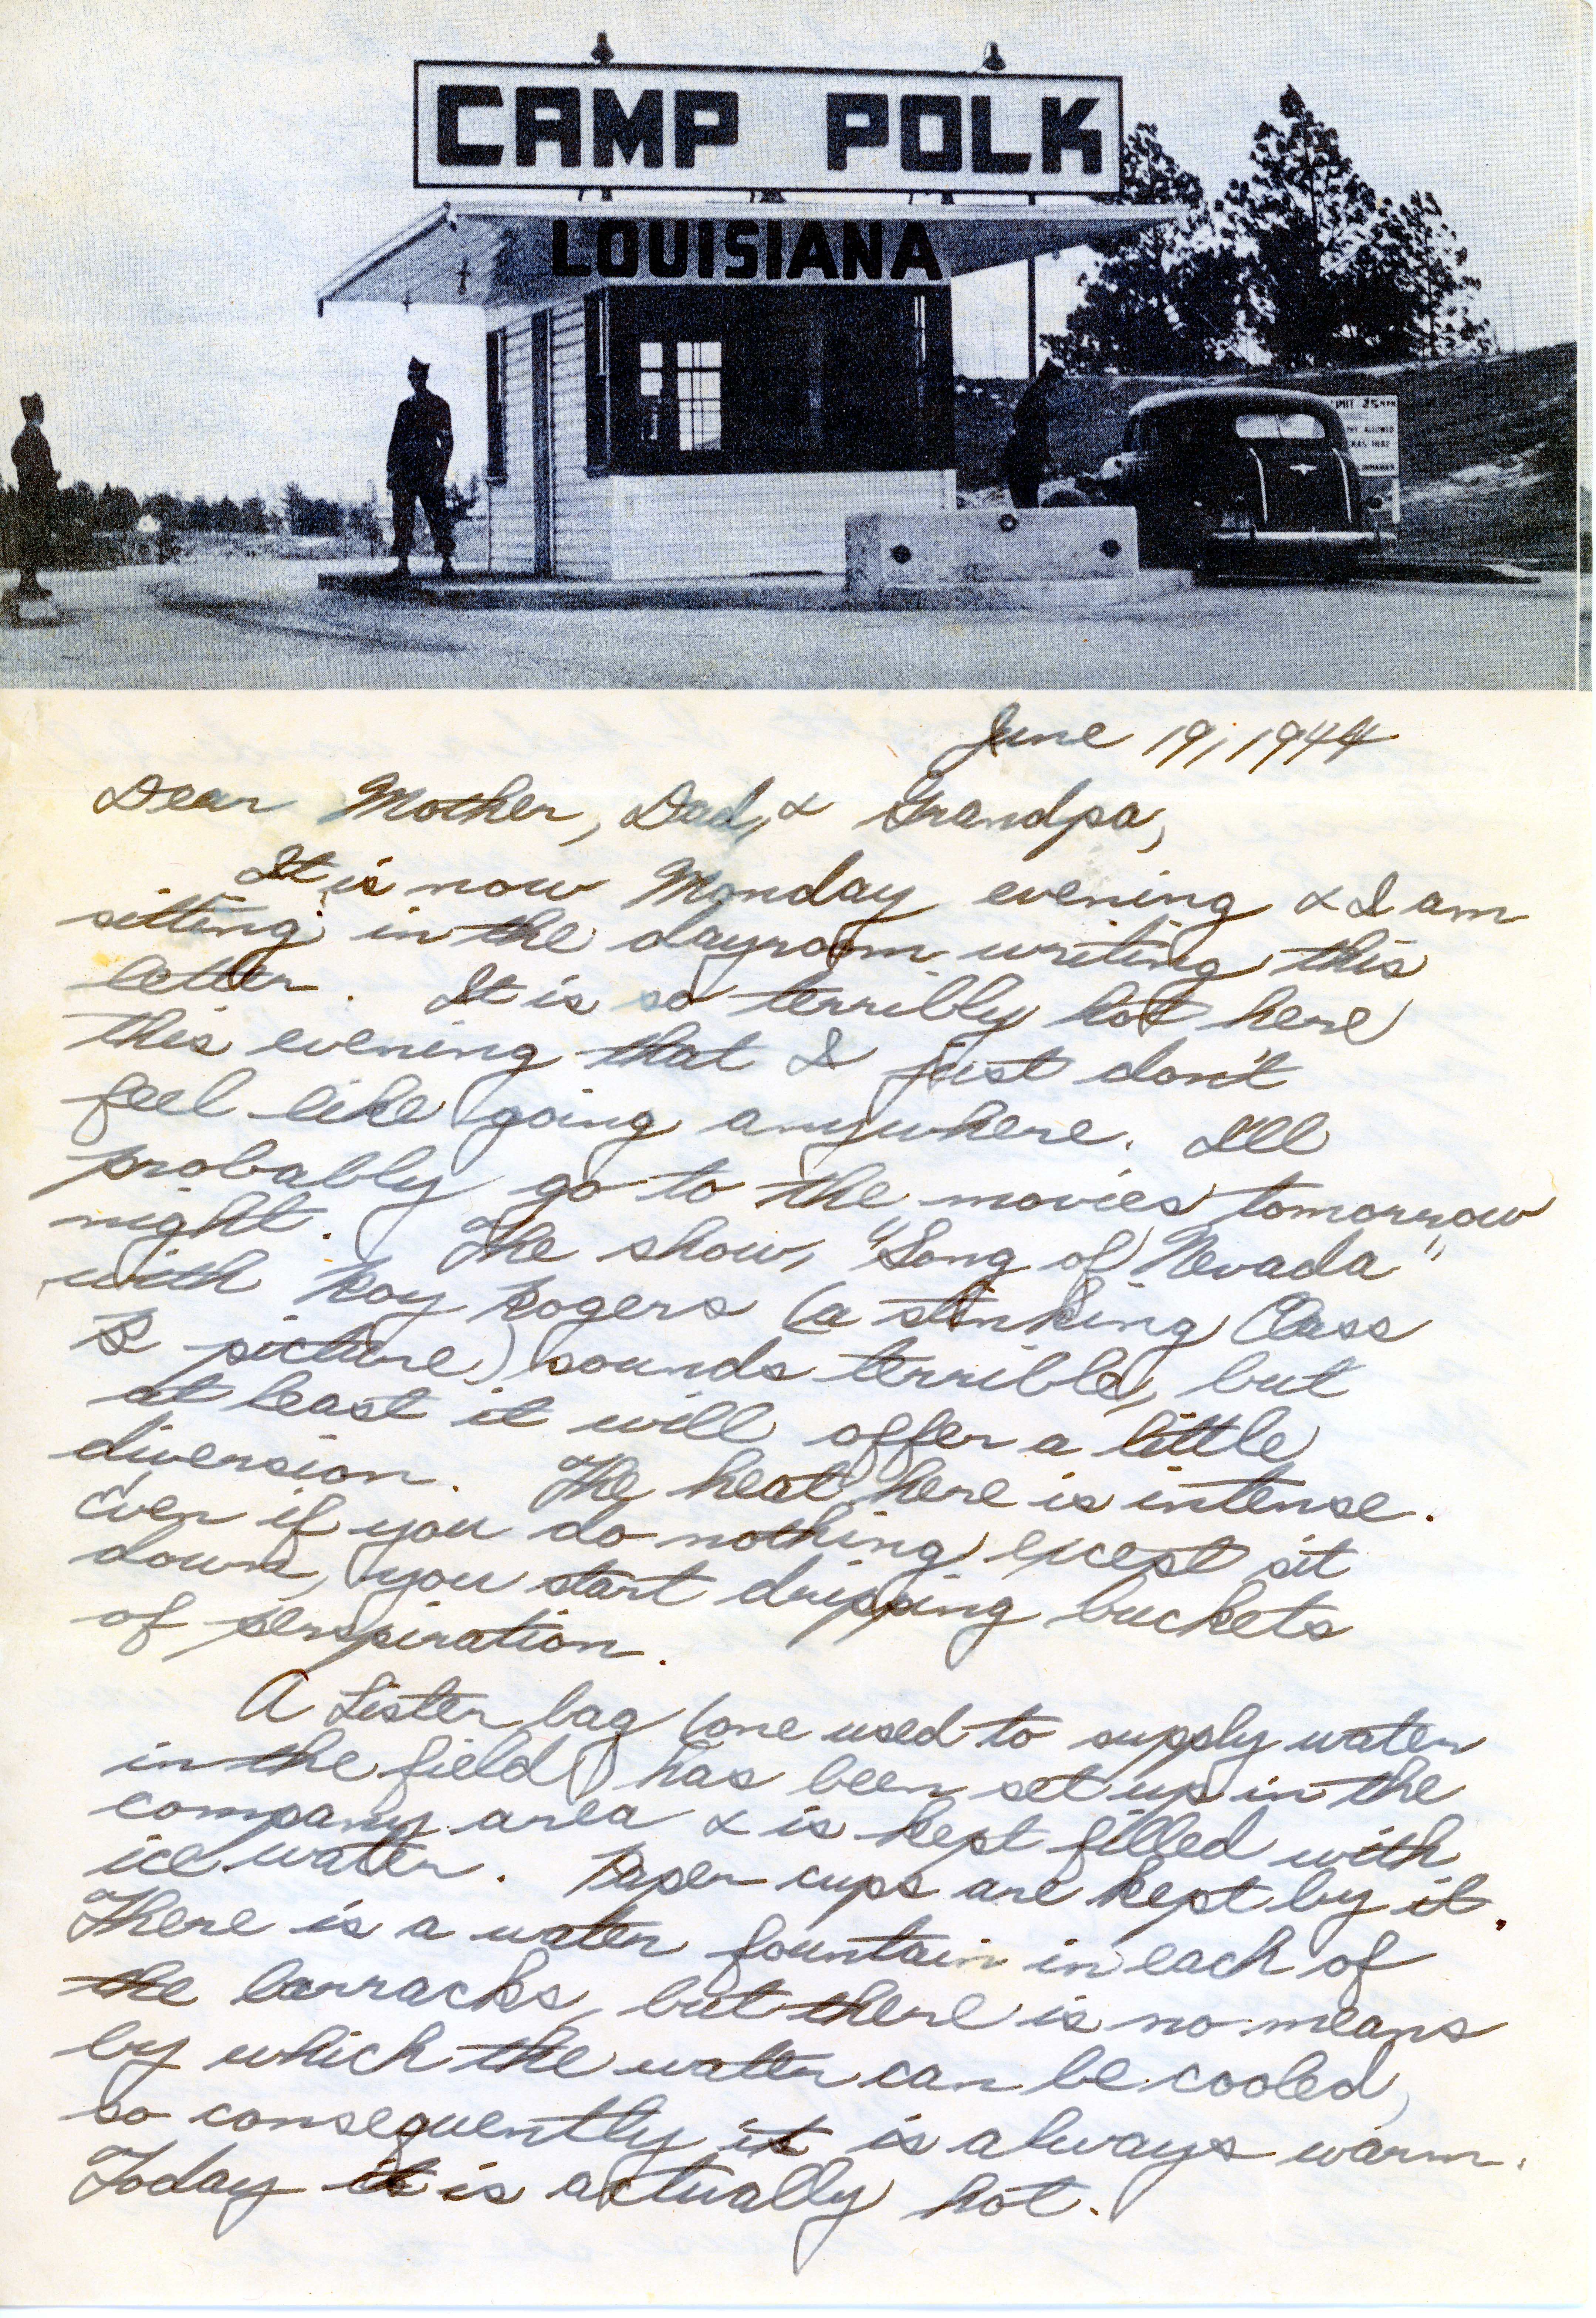 CAMP POLK
LOUISIANA
LIMIT 25 MPH
ALLOWED
HERE
June 19, 1944
Dear Mother, Dad, & Grandpa,
It is now Monday evening & I am
sitting in the dayroom writing this
letter. It is so terribly hot here
this evening that I just don't
feel like going anywhere. I'll
probably go to the movies tomorrow
night. The show, "Song of Nevada"
with Roy Rogers (a stinking Class
B picture) sounds terrible, but
at least it will offer a little
diversion. The heat here is intense.
Even if you do nothing except sit
down, you start dripping buckets
of perspiration.
A Lister bag (one used to supply water
in the field) has been set up in the
company area & is kept filled with
ice water. Paper cups are kept by it.
There is a water fountain in each of
the barracks, but there is no means
by which the water can be cooled,
so consequently it is always warm.
Today it is actually hot.